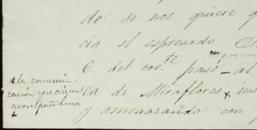 do se nos quiere q
cia el espresado
6 del cor.te pasó al
ca de Miraflores, sus
y amenazando con
a la comuni,
cación que original
acompañamos